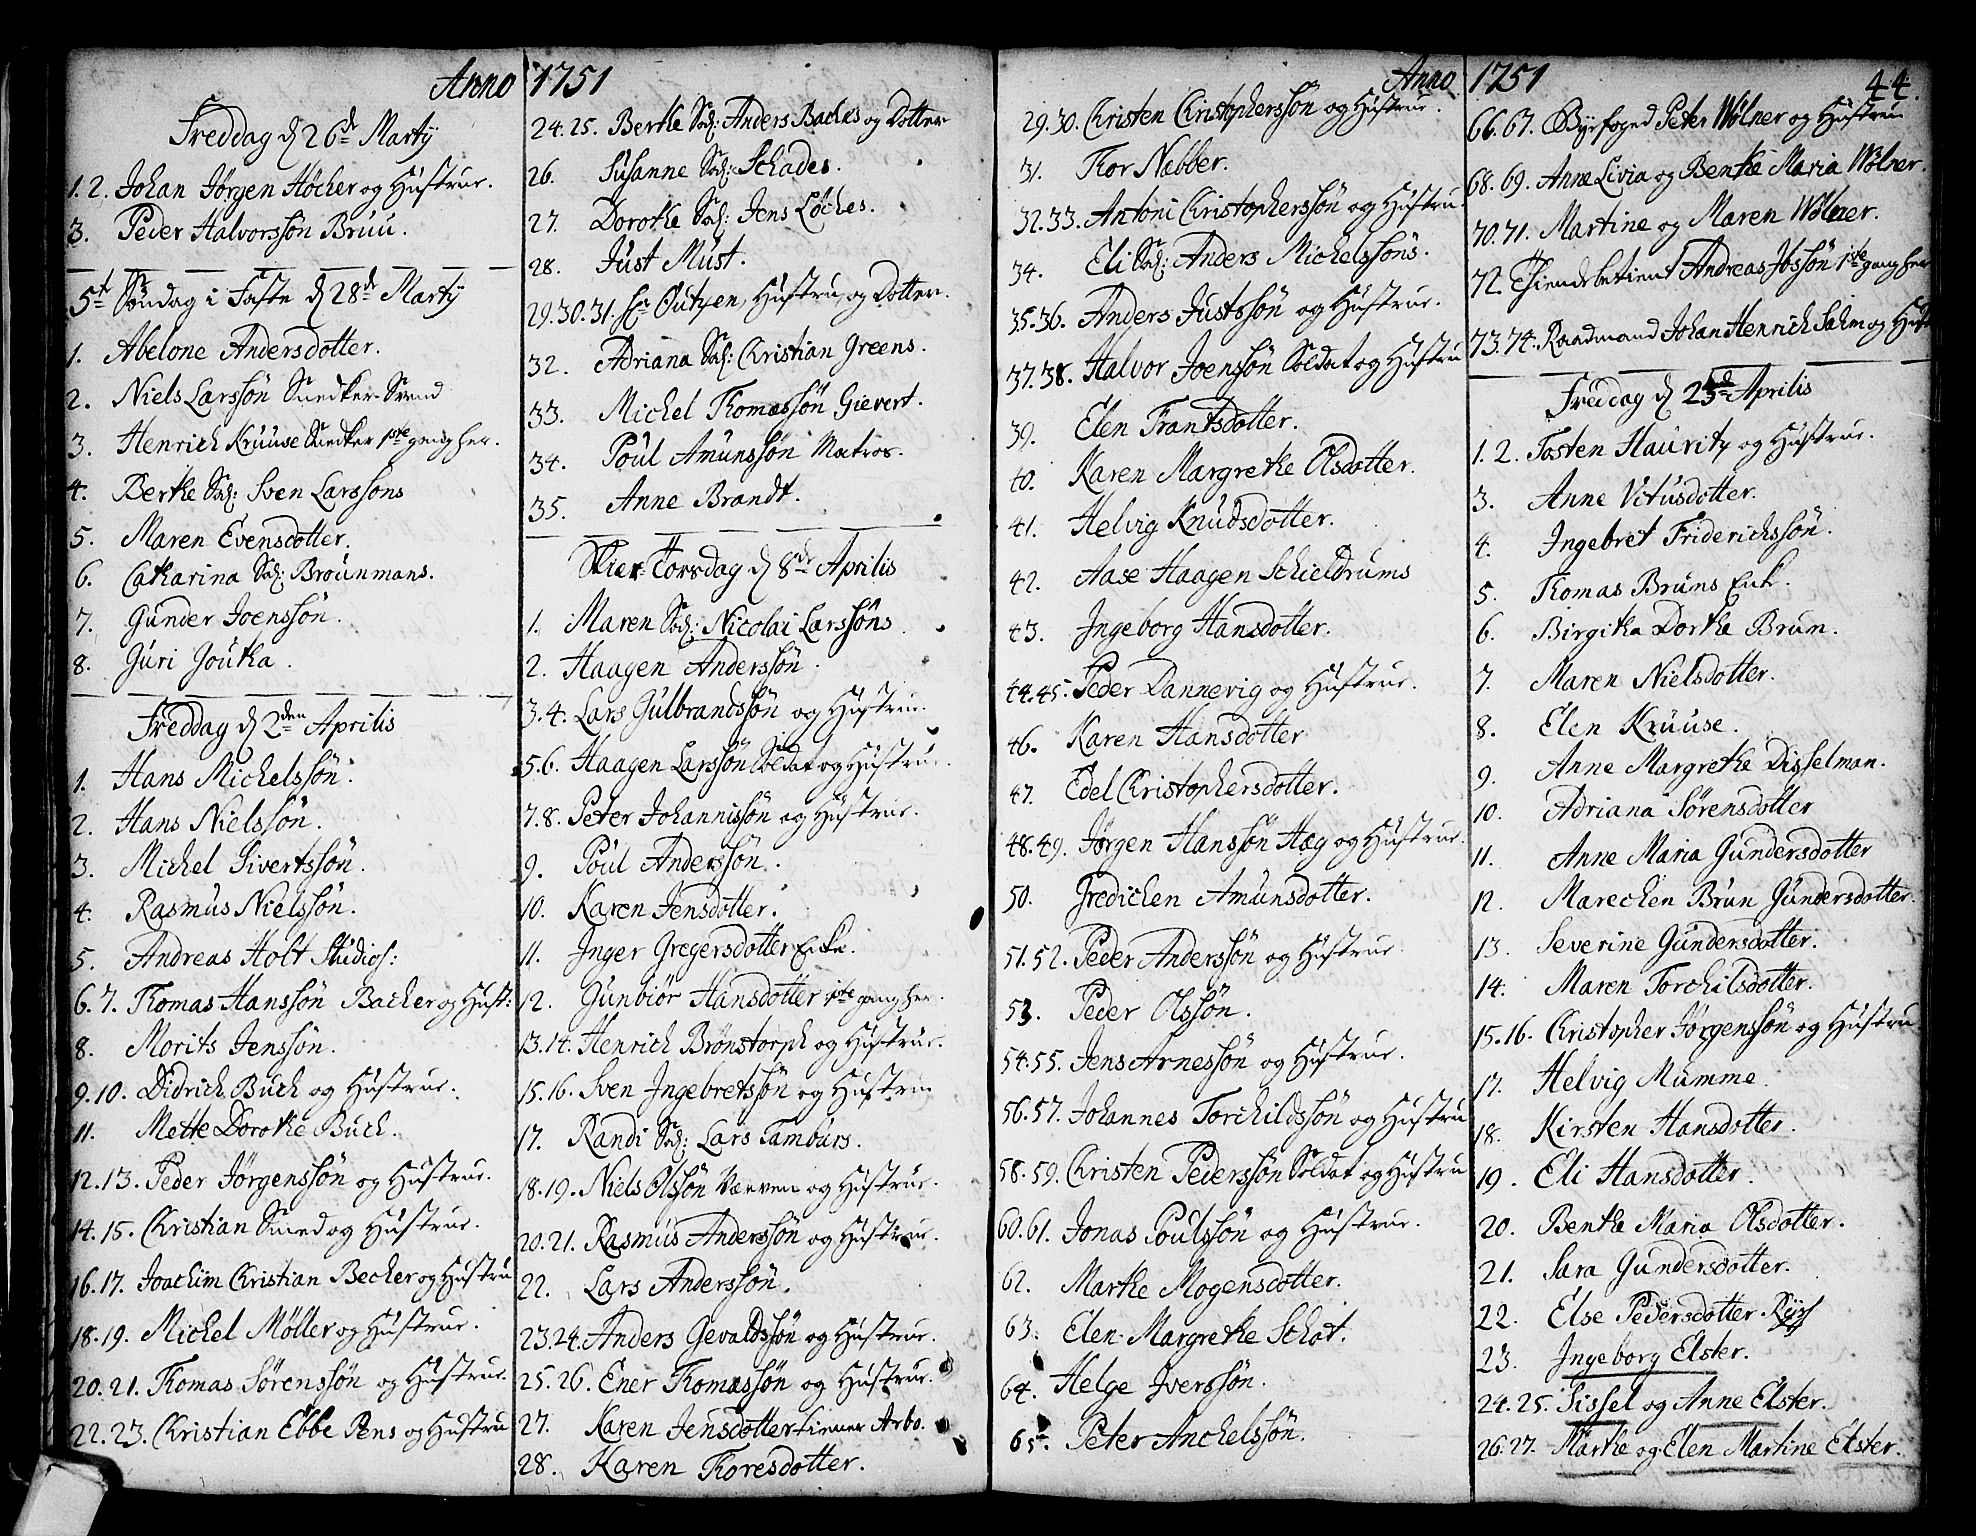 Anno 1751
Freddag d 26d Martÿ
1. 2. Johan Jörgen Höcher og Hustrue.
3. Peder Halvorssön Bruu.
5te Söndag i Faste d 28de Martÿ
1. Abelone Andersdotter.
2. Niels Larssön Snedker-Svend
3. Henrich Kruuse Snedker 1ste gang her.
4. Berthe Sal: Sven Larssons
5. Maren Evensdotter.
6. Catharina Sal: Brounmans.
7. Gunder Joenssön.
8. Guri Joutka.
Freddag d 2den Aprilis
1. Hans Michelssön.
2. Hans Nielssön.
3. Michel Sivertssön.
4. Rasmus Nielssön.
5. Andreas Holt Studios:
6. 7. Thomas Hanssön Bacher og Hust:
8. Morits Jenssön.
9. 10. Didrich Buch og Hustrue.
11. Mette Dorothe Buch.
12. 13. Peder Jörgenssön og Hustrue.
14. 15. Christian Smed og Hustrue.
16. 17. Joachim Christian Becher og Hustru
18. 19. Michel Möller og Hustrue.
20. 21. Thomas Sörenssön og Hustrue.
22. 23. Christian Ebbe Pens og Hustru
24. 25. Berthe Sal: Anders Baches og Dotter
26. Susanne Sal: Schades.
27. Dorothe Sal: Jens Löches.
28. Just Must.
29. 30. 31. Hr Outzen, Hustru og Dotter.
32. Adriana Sal: Christian Greens.
33. Michel Thomassön Gievert.
34. Poul Amunssön Matros.
35. Anne Brandt.
Skier-Torsdag d 8de Aprilis
1. Maren Sal: Nicolai Larssöns
2. Haagen Anderssön.
3. 4. Lars Gulbrandssön og Hustrue.
5. 6. Haagen Larssön Soldat og Hustrue.
7. 8. Peter Johannissön og Hustrue.
9. Poul Anderssön.
10. Karen Jensdotter.
11. Inger Gregersdotter Enke.
12. Gunbiör Hansdotter 1ste gang her.
13. 14. Henrich Brönstorph og Hustrue.
15. 16. Sven Ingebretssön og Hustrue
17. Randi Sal: Lars Tambürs.
18. 19. Niels Olssön Værven og Hustrue.
20. 21. Rasmus Anderssön og Hustrue.
22. Lars Anderssön.
23. 24. Anders Gevaldssön og Hustrue.
25. 26. Ener Thomassön og Hustrue.
27. Karen Jensdotter tiener Arbo.
28. Karen Thoresdotter.
Anno 1751 44.
29. 30. Christen Christopherssön og Hustrue.
31. Thor Næbber.
32. 33. Antoni Christopherssön og Hustru
34. Eli Sal: Anders Michelssöns.
35. 36. Anders Justssön og Hustrue.
37. 38. Halvor Joenssön Soldat og Hustru
39. Elen Frantsdotter.
40. Karen Margrethe Olsdotter.
41. Helvig Knudsdotter.
42. Aase Haagen Schieldrums
43. Ingeborg Hansdotter.
44. 45. Peder Dannevig og Hustrue.
46. Karen Hansdotter
47. Edel Christophersdotter.
48. 49. Jörgen Hanssön Hæg og Hustrue.
50. Gredichen Amunsdotter.
51. 52. Peder Anderssön og Hustrue
53. Peder Olssön.
54. 55. Jens Arnessön og Hustrue.
56. 57. Johannes Torchildssön og Hustru
58. 59. Christen Pederssön Soldat og Hustru
60. 61. Jonas Poulssön og Hustrue.
62. Marthe Mogensdotter.
63. Elen Margrethe Schot.
64. Helge Iverssön.
65. Peter Anchelssön.
66. 67. Byefoged Peter Wölner og Hustrue
68. 69. Anne Livia og Benthe Maria Wölner.
70. 71. Martine og Maren Wölner.
72. Tienerbetient Andreas Ibssön 1ste gang her
73. 74. Raadmand Johan Henrich Sahm og Hust
Freddag d 23de Aprilis
1. 2. Tosten Hauritz og Hustrue.
3. Anne Vitusdotter.
4. Ingebret Friderichssön.
5. Thomas Bruns Enke.
6. Birgitha Dorthe Brun.
7. Maren Nielsdotter.
8. Elen Kruuse.
9. Anne Margrethe Disselman.
10. Adriana Sörensdotter
11. Anne Maria Gundersdotter
12. Marechen Brun Gundersdotter.
13. Severine Gundersdotter.
14. Maren Torchilsdotter.
15. 16. Christopher Jörgenssön og Hustru
17. Helvig Mumme
18. Kirsten Hansdotter.
19. Eli Hansdotter.
20. Benthe Maria Olsdotter.
21. Sara Gundersdotter.
22. Else Pedersdotter
23. Ingeborg Elster.
24. 25. Sissel og Anne Elster.
26. 27. Marthe og Elen Martine Elster.